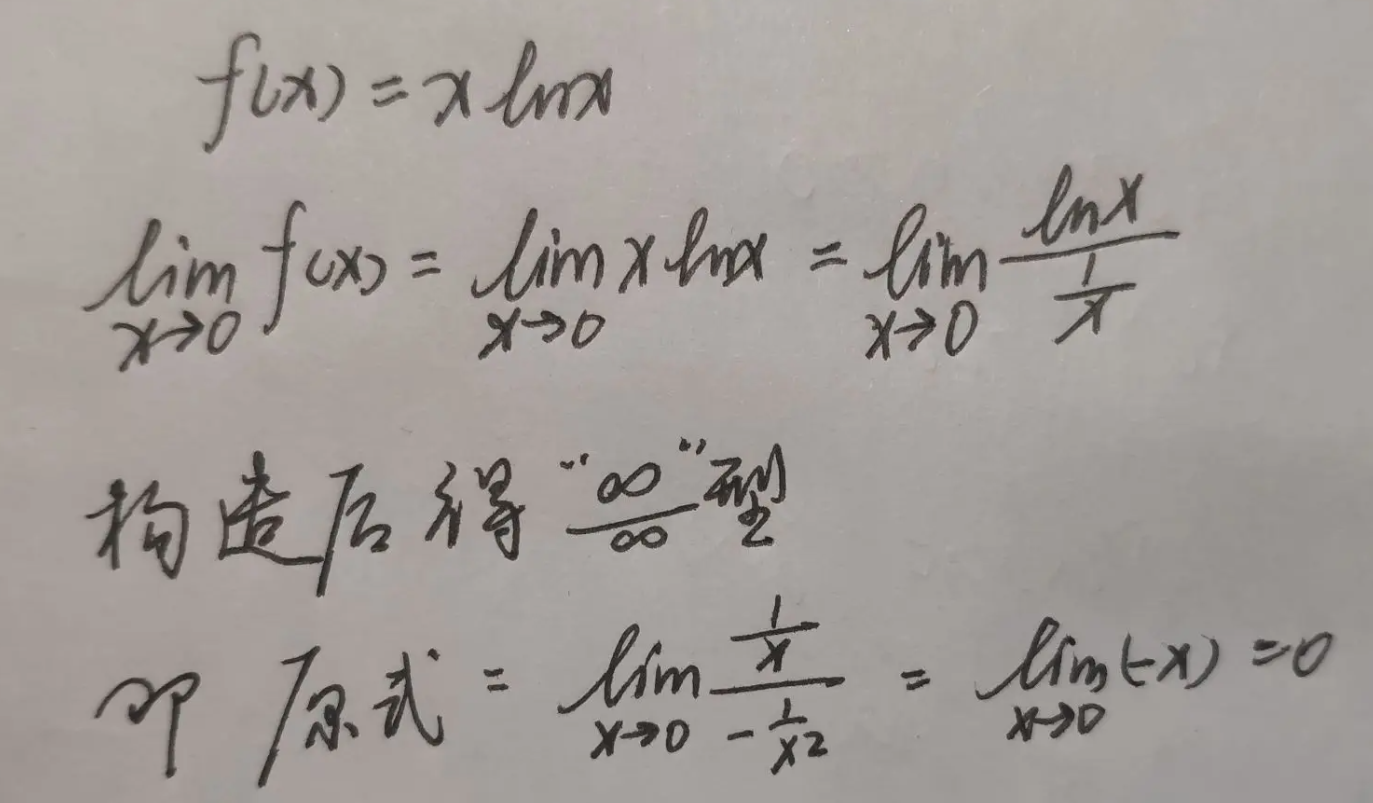 f(x) = x lnx
lim x→0 f(x) = lim x→0 x lnx = lim x→0 lnx / (1/x)
构造后得 “∞/∞” 型
即 原式 = lim x→0 (1/x) / (-1/x²) = lim x→0 (-x) = 0